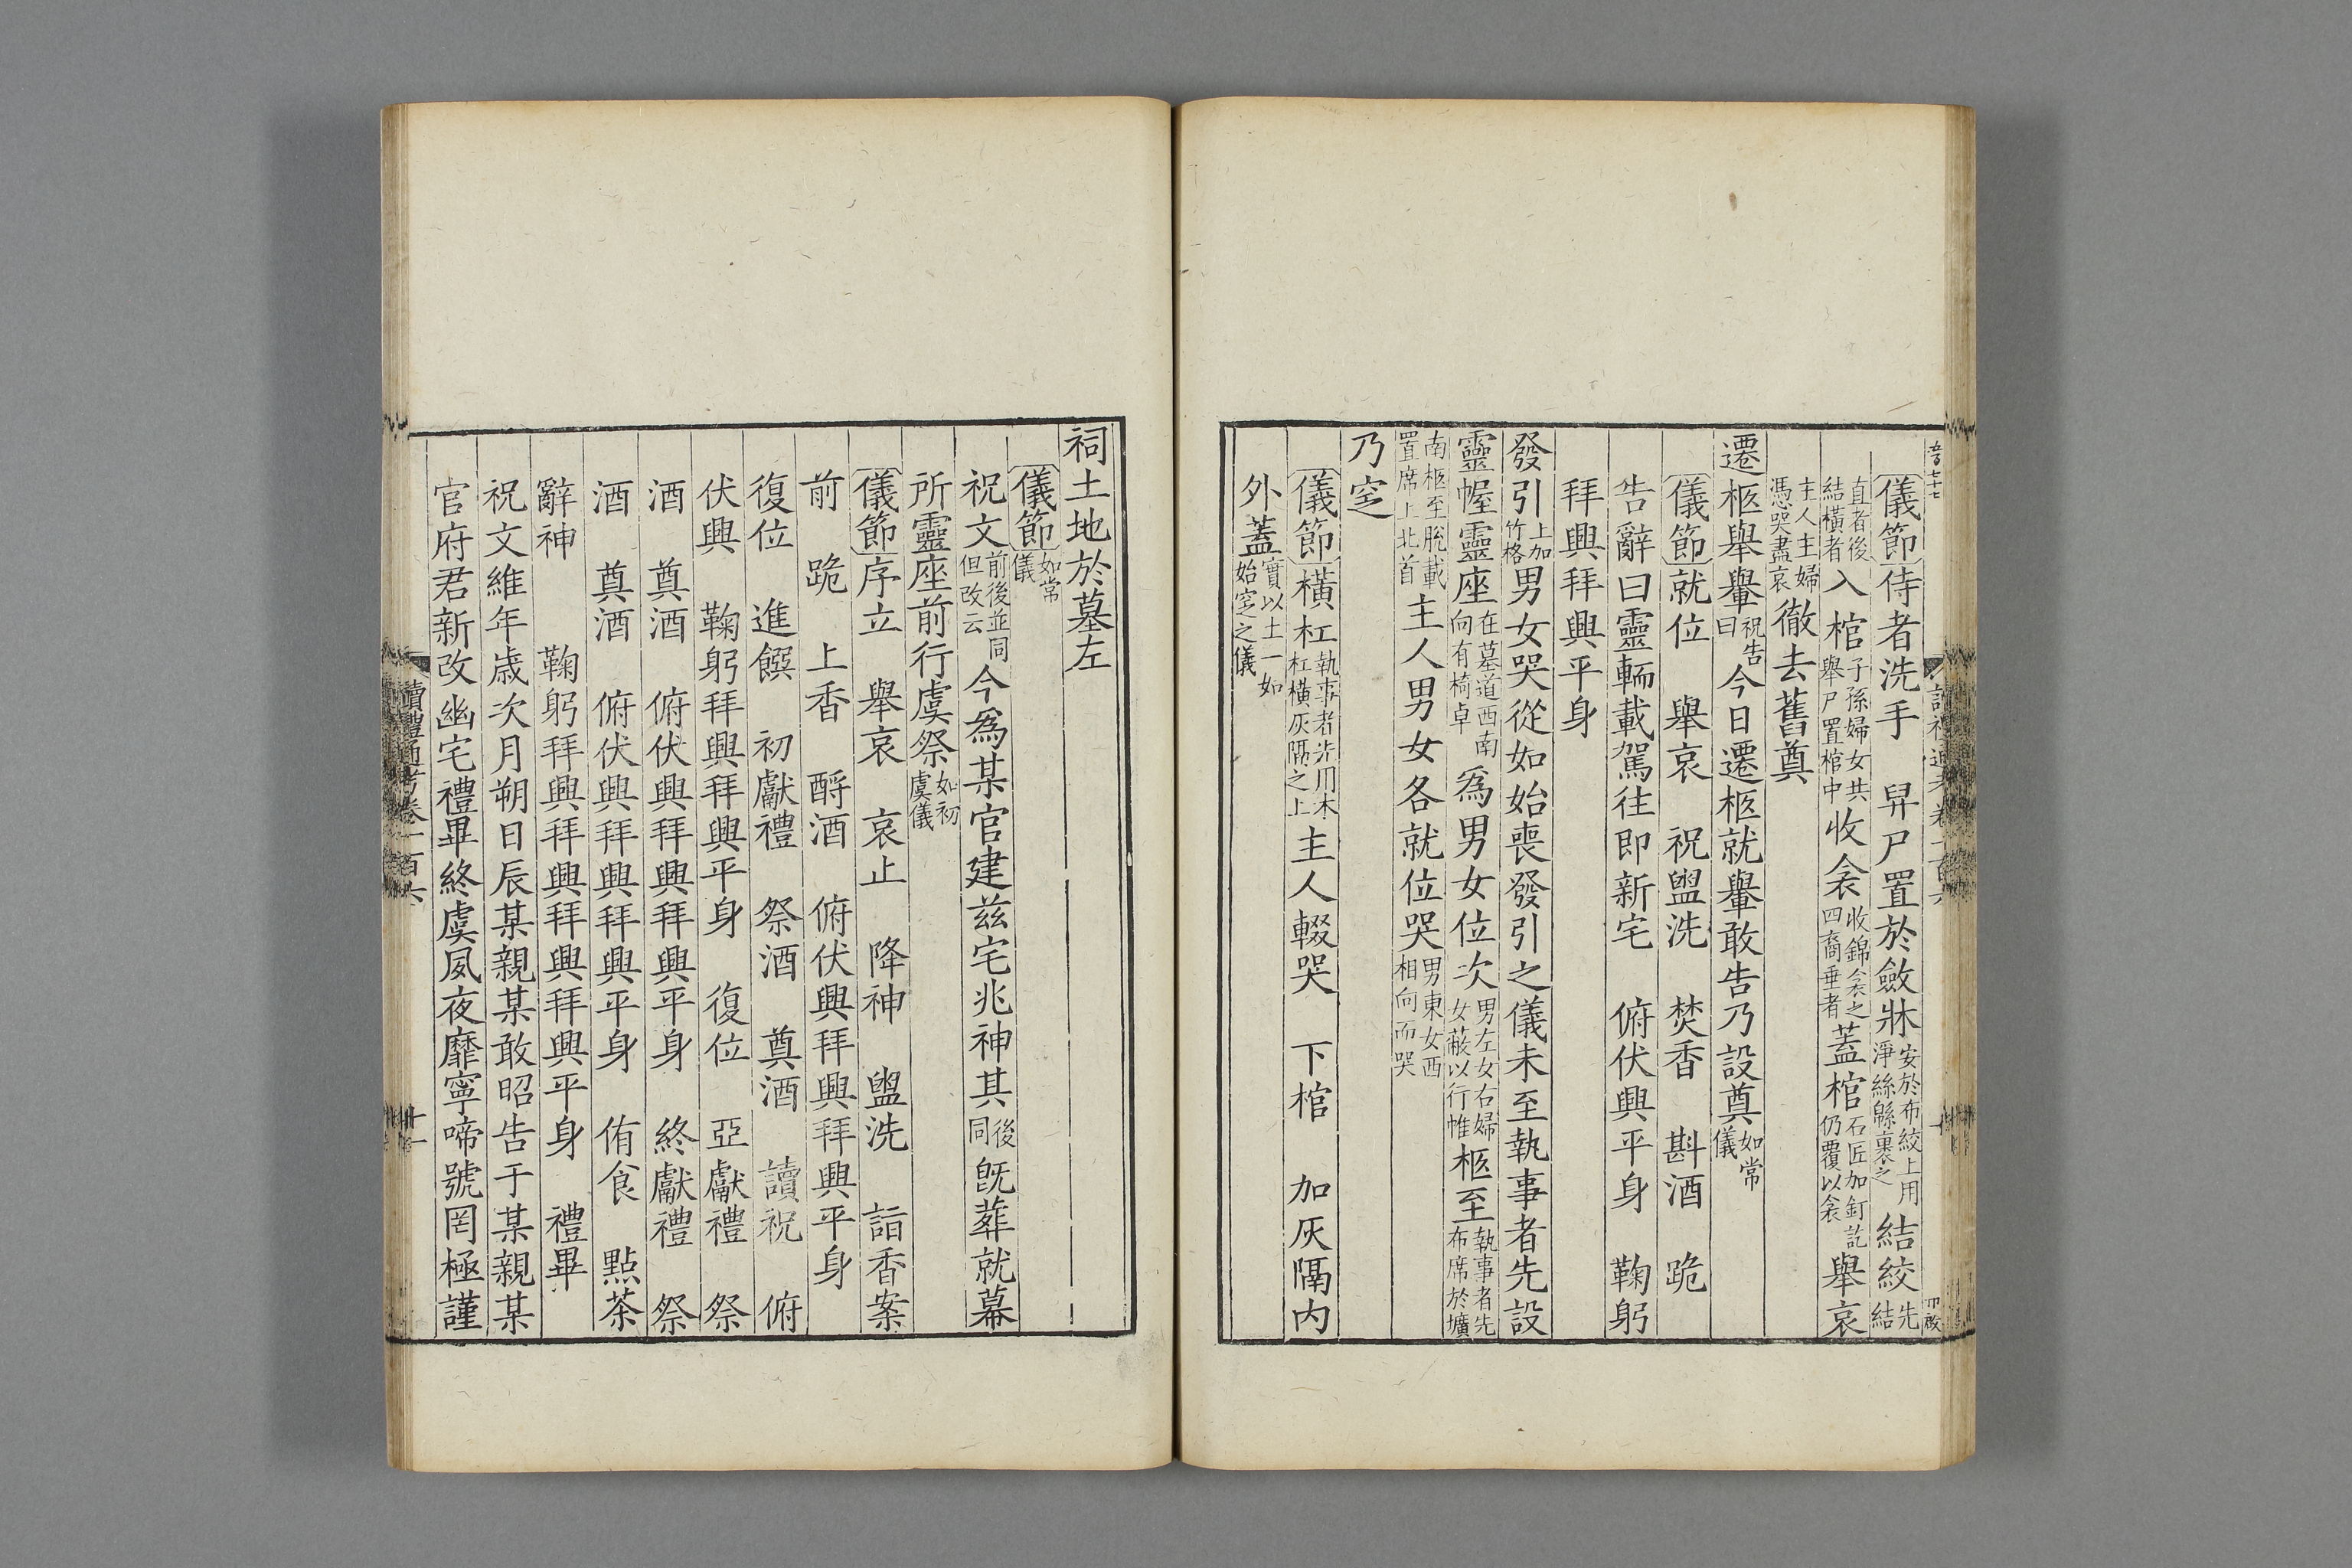 儀節侍者洗手　舁尸置於斂牀安於布絞上用淨絲緜裹之結絞先結
直者後結橫者入棺子孫婦女共舉尸置棺中收衾收錦衾之四裔垂者蓋棺石匠加釘訖仍覆以衾舉哀
主人主婦憑哭盡哀徹去舊奠
遷柩舉轝祝告曰今日遷柩就轝敢告乃設奠如常儀
儀節就位　舉哀　祝盥洗　焚香　斟酒　跪
告辭曰靈輀載駕往即新宅　俯伏興平身　鞠躬
拜興拜興平身
發引上加竹格男女哭從如始喪發引之儀未至執事者先設
靈幄靈座在墓道西南向有椅卓爲男女位次男左女右婦女蔽以行帷柩至執事者先布席於壙
南柩至脫載置席上北首主人男女各就位哭男東女西相向而哭
乃窆
儀節橫杠執事者先用木杠橫灰隔之上主人輟哭　下棺　加灰隔内
外蓋實以土一如始窆之儀
祠土地於墓左
儀節如常儀
祝文前後並同但改云今爲某官建兹宅兆神其後同旣葬就幕
所靈座前行虞祭如初虞儀
儀節序立　舉哀　哀止　降神　盥洗　詣香案
前　跪　上香　酹酒　俯伏興拜興拜興平身
復位　進饌　初獻禮　祭酒　奠酒　讀祝　俯
伏興　鞠躬拜興拜興平身　復位　亞獻禮　祭
酒　奠酒　俯伏興拜興拜興平身　終獻禮　祭
酒　奠酒　俯伏興拜興拜興平身　侑食　點茶
辭神　鞠躬拜興拜興拜興拜興平身　禮畢
祝文維年歲次月朔日辰某親某敢昭告于某親某
官府君新改幽宅禮畢終虞夙夜靡寧啼號罔極謹
讀禮通考卷一百六
十一